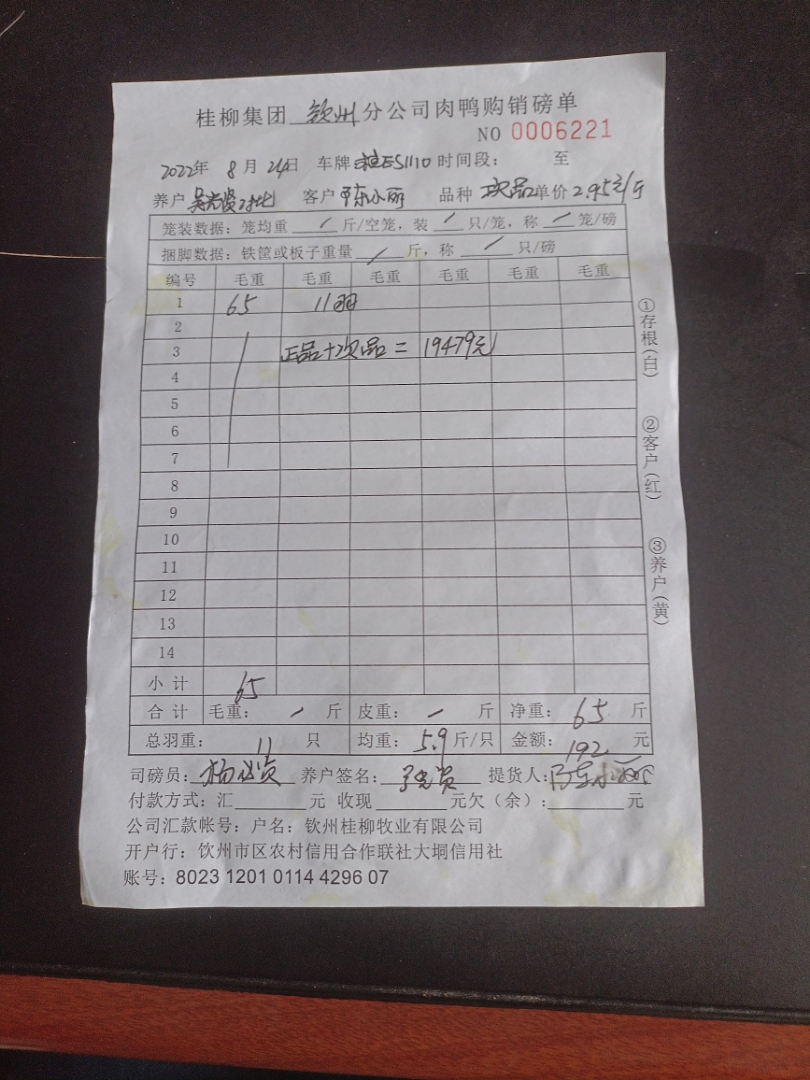 桂柳集团 钦州 分公司肉鸭购销磅单
NO 0006221
2022年 8月 24日 车牌 桂ES1110 时间段： 至
养户 客户 陈小丽 品种 次品 单价 2.95元/斤
笼装数据：笼均重 / 斤/空笼，装 / 只/笼，称 / 笼/磅
捆脚数据：铁筐或板子重量 / 斤，称 / 只/磅
编号 毛重 毛重 毛重 毛重 毛重 毛重
1 65 11羽
2
3 正品+次品＝19479元
4
5
6
7
8
9
10
11
12
13
14
小计 65
合计 毛重： / 斤 皮重： / 斤 净重： 65 斤
总羽重： 11 只 均重： 5.9 斤/只 金额： 192 元
司磅员： 养户签名： 提货人：陈小丽
付款方式：汇 元 收现 元欠（余）： 元
公司汇款帐号：户名：钦州桂柳牧业有限公司
开户行：钦州市区农村信用合作联社大垌信用社
账号：8023 1201 0114 4296 07
①存根（白）
②客户（红）
③养户（黄）